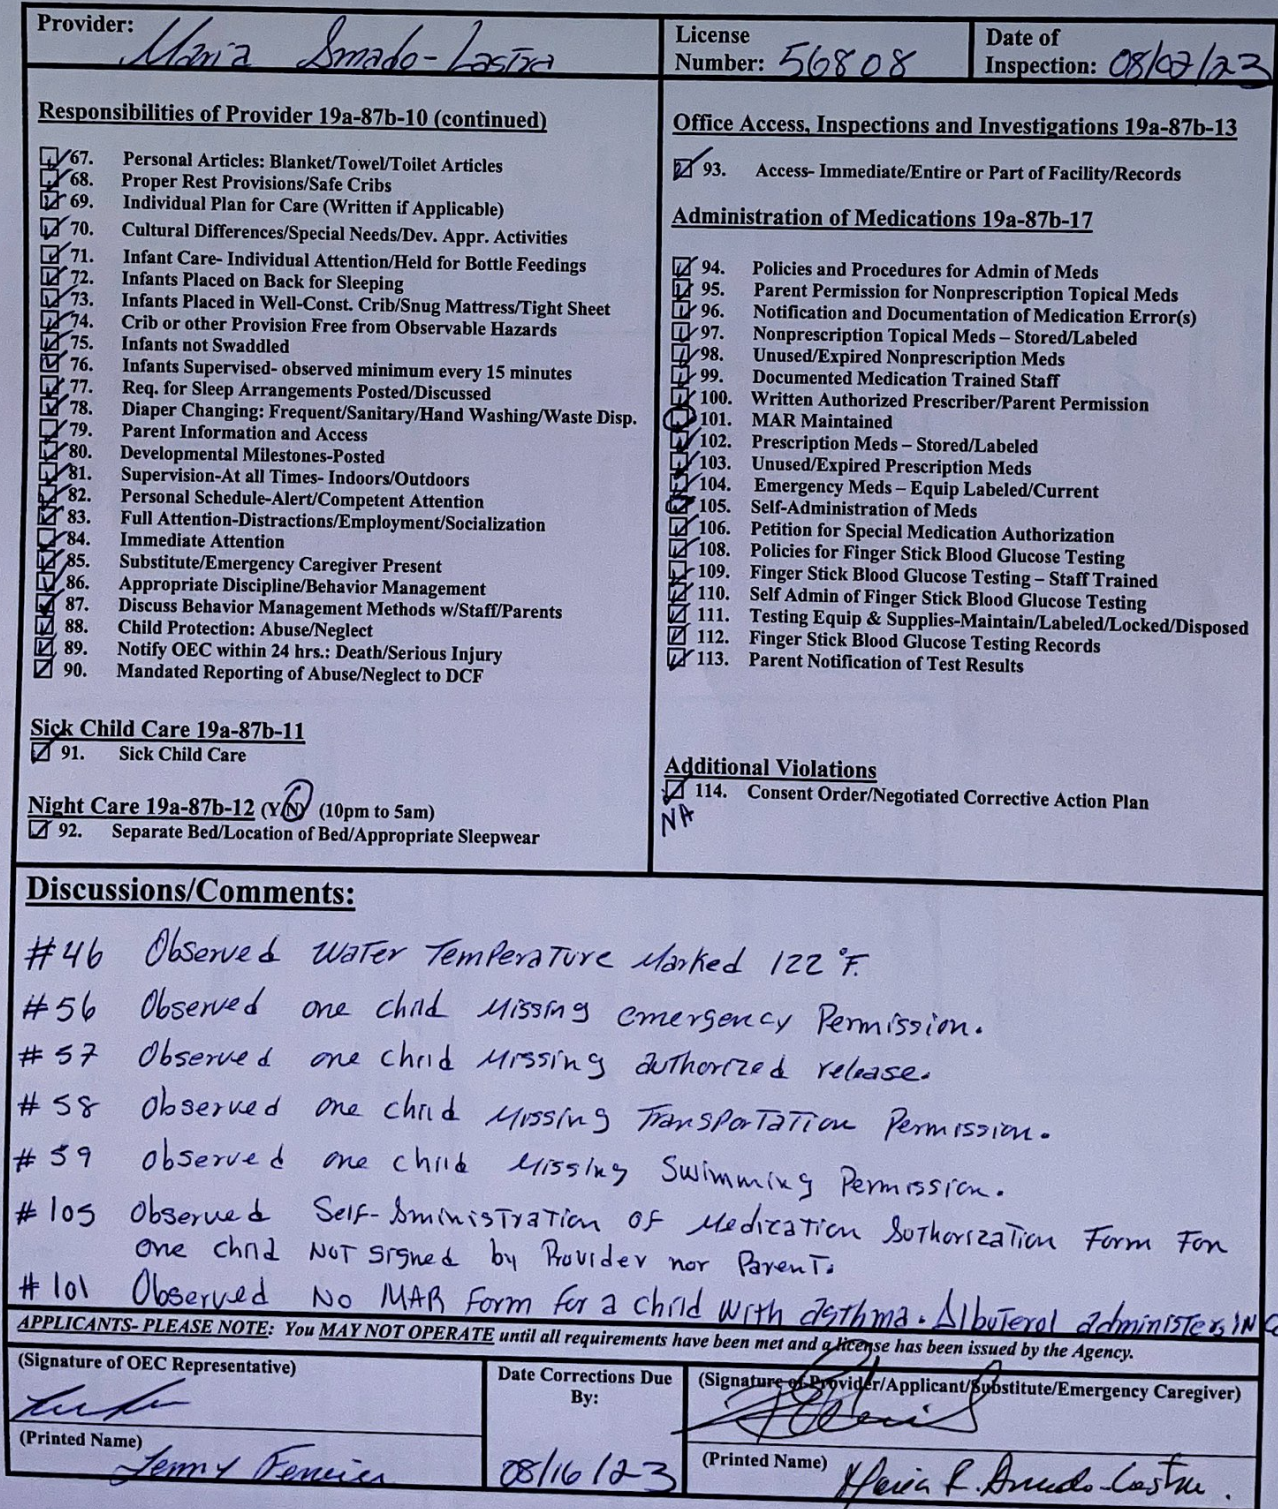 Provider: Maria Amado-Lastra
License Number: 56808
Date of Inspection: 08/02/23
Responsibilities of Provider 19a-87b-10 (continued)
67. Personal Articles: Blanket/Towel/Toilet Articles
68. Proper Rest Provisions/Safe Cribs
69. Individual Plan for Care (Written if Applicable)
70. Cultural Differences/Special Needs/Dev. Appr. Activities
71. Infant Care- Individual Attention/Held for Bottle Feedings
72. Infants Placed on Back for Sleeping
73. Infants Placed in Well-Const. Crib/Snug Mattress/Tight Sheet
74. Crib or other Provision Free from Observable Hazards
75. Infants not Swaddled
76. Infants Supervised- observed minimum every 15 minutes
77. Req. for Sleep Arrangements Posted/Discussed
78. Diaper Changing: Frequent/Sanitary/Hand Washing/Waste Disp.
79. Parent Information and Access
80. Developmental Milestones-Posted
81. Supervision-At all Times- Indoors/Outdoors
82. Personal Schedule-Alert/Competent Attention
83. Full Attention-Distractions/Employment/Socialization
84. Immediate Attention
85. Substitute/Emergency Caregiver Present
86. Appropriate Discipline/Behavior Management
87. Discuss Behavior Management Methods w/Staff/Parents
88. Child Protection: Abuse/Neglect
89. Notify OEC within 24 hrs.: Death/Serious Injury
90. Mandated Reporting of Abuse/Neglect to DCF
Sick Child Care 19a-87b-11
91. Sick Child Care
Night Care 19a-87b-12 (Y/N) (10pm to 5am)
92. Separate Bed/Location of Bed/Appropriate Sleepwear
Office Access, Inspections and Investigations 19a-87b-13
93. Access- Immediate/Entire or Part of Facility/Records
Administration of Medications 19a-87b-17
94. Policies and Procedures for Admin of Meds
95. Parent Permission for Nonprescription Topical Meds
96. Notification and Documentation of Medication Error(s)
97. Nonprescription Topical Meds – Stored/Labeled
98. Unused/Expired Nonprescription Meds
99. Documented Medication Trained Staff
100. Written Authorized Prescriber/Parent Permission
101. MAR Maintained
102. Prescription Meds – Stored/Labeled
103. Unused/Expired Prescription Meds
104. Emergency Meds – Equip Labeled/Current
105. Self-Administration of Meds
106. Petition for Special Medication Authorization
108. Policies for Finger Stick Blood Glucose Testing
109. Finger Stick Blood Glucose Testing – Staff Trained
110. Self Admin of Finger Stick Blood Glucose Testing
111. Testing Equip & Supplies-Maintain/Labeled/Locked/Disposed
112. Finger Stick Blood Glucose Testing Records
113. Parent Notification of Test Results
Additional Violations
114. Consent Order/Negotiated Corrective Action Plan
NA
Discussions/Comments:
#46 Observed Water Temperature Marked 122 °F.
#56 Observed one child Missing emergency Permission.
#57 Observed one child Missing authorized release.
#58 Observed one child Missing Transportation Permission.
#59 Observed one child Missing Swimming Permission.
#105 Observed Self-Aministration of Medication Authorization Form For
one child Not signed by Provider nor Parent.
#101 Observed No MAR Form for a child with asthma. Albuterol administers IN
APPLICANTS- PLEASE NOTE: You MAY NOT OPERATE until all requirements have been met and a license has been issued by the Agency.
(Signature of OEC Representative)
(Printed Name)
Jenny
Date Corrections Due By:
08/16/23
(Signature of Provider/Applicant/Substitute/Emergency Caregiver)
(Printed Name) Maria R. Amado-Lastra.